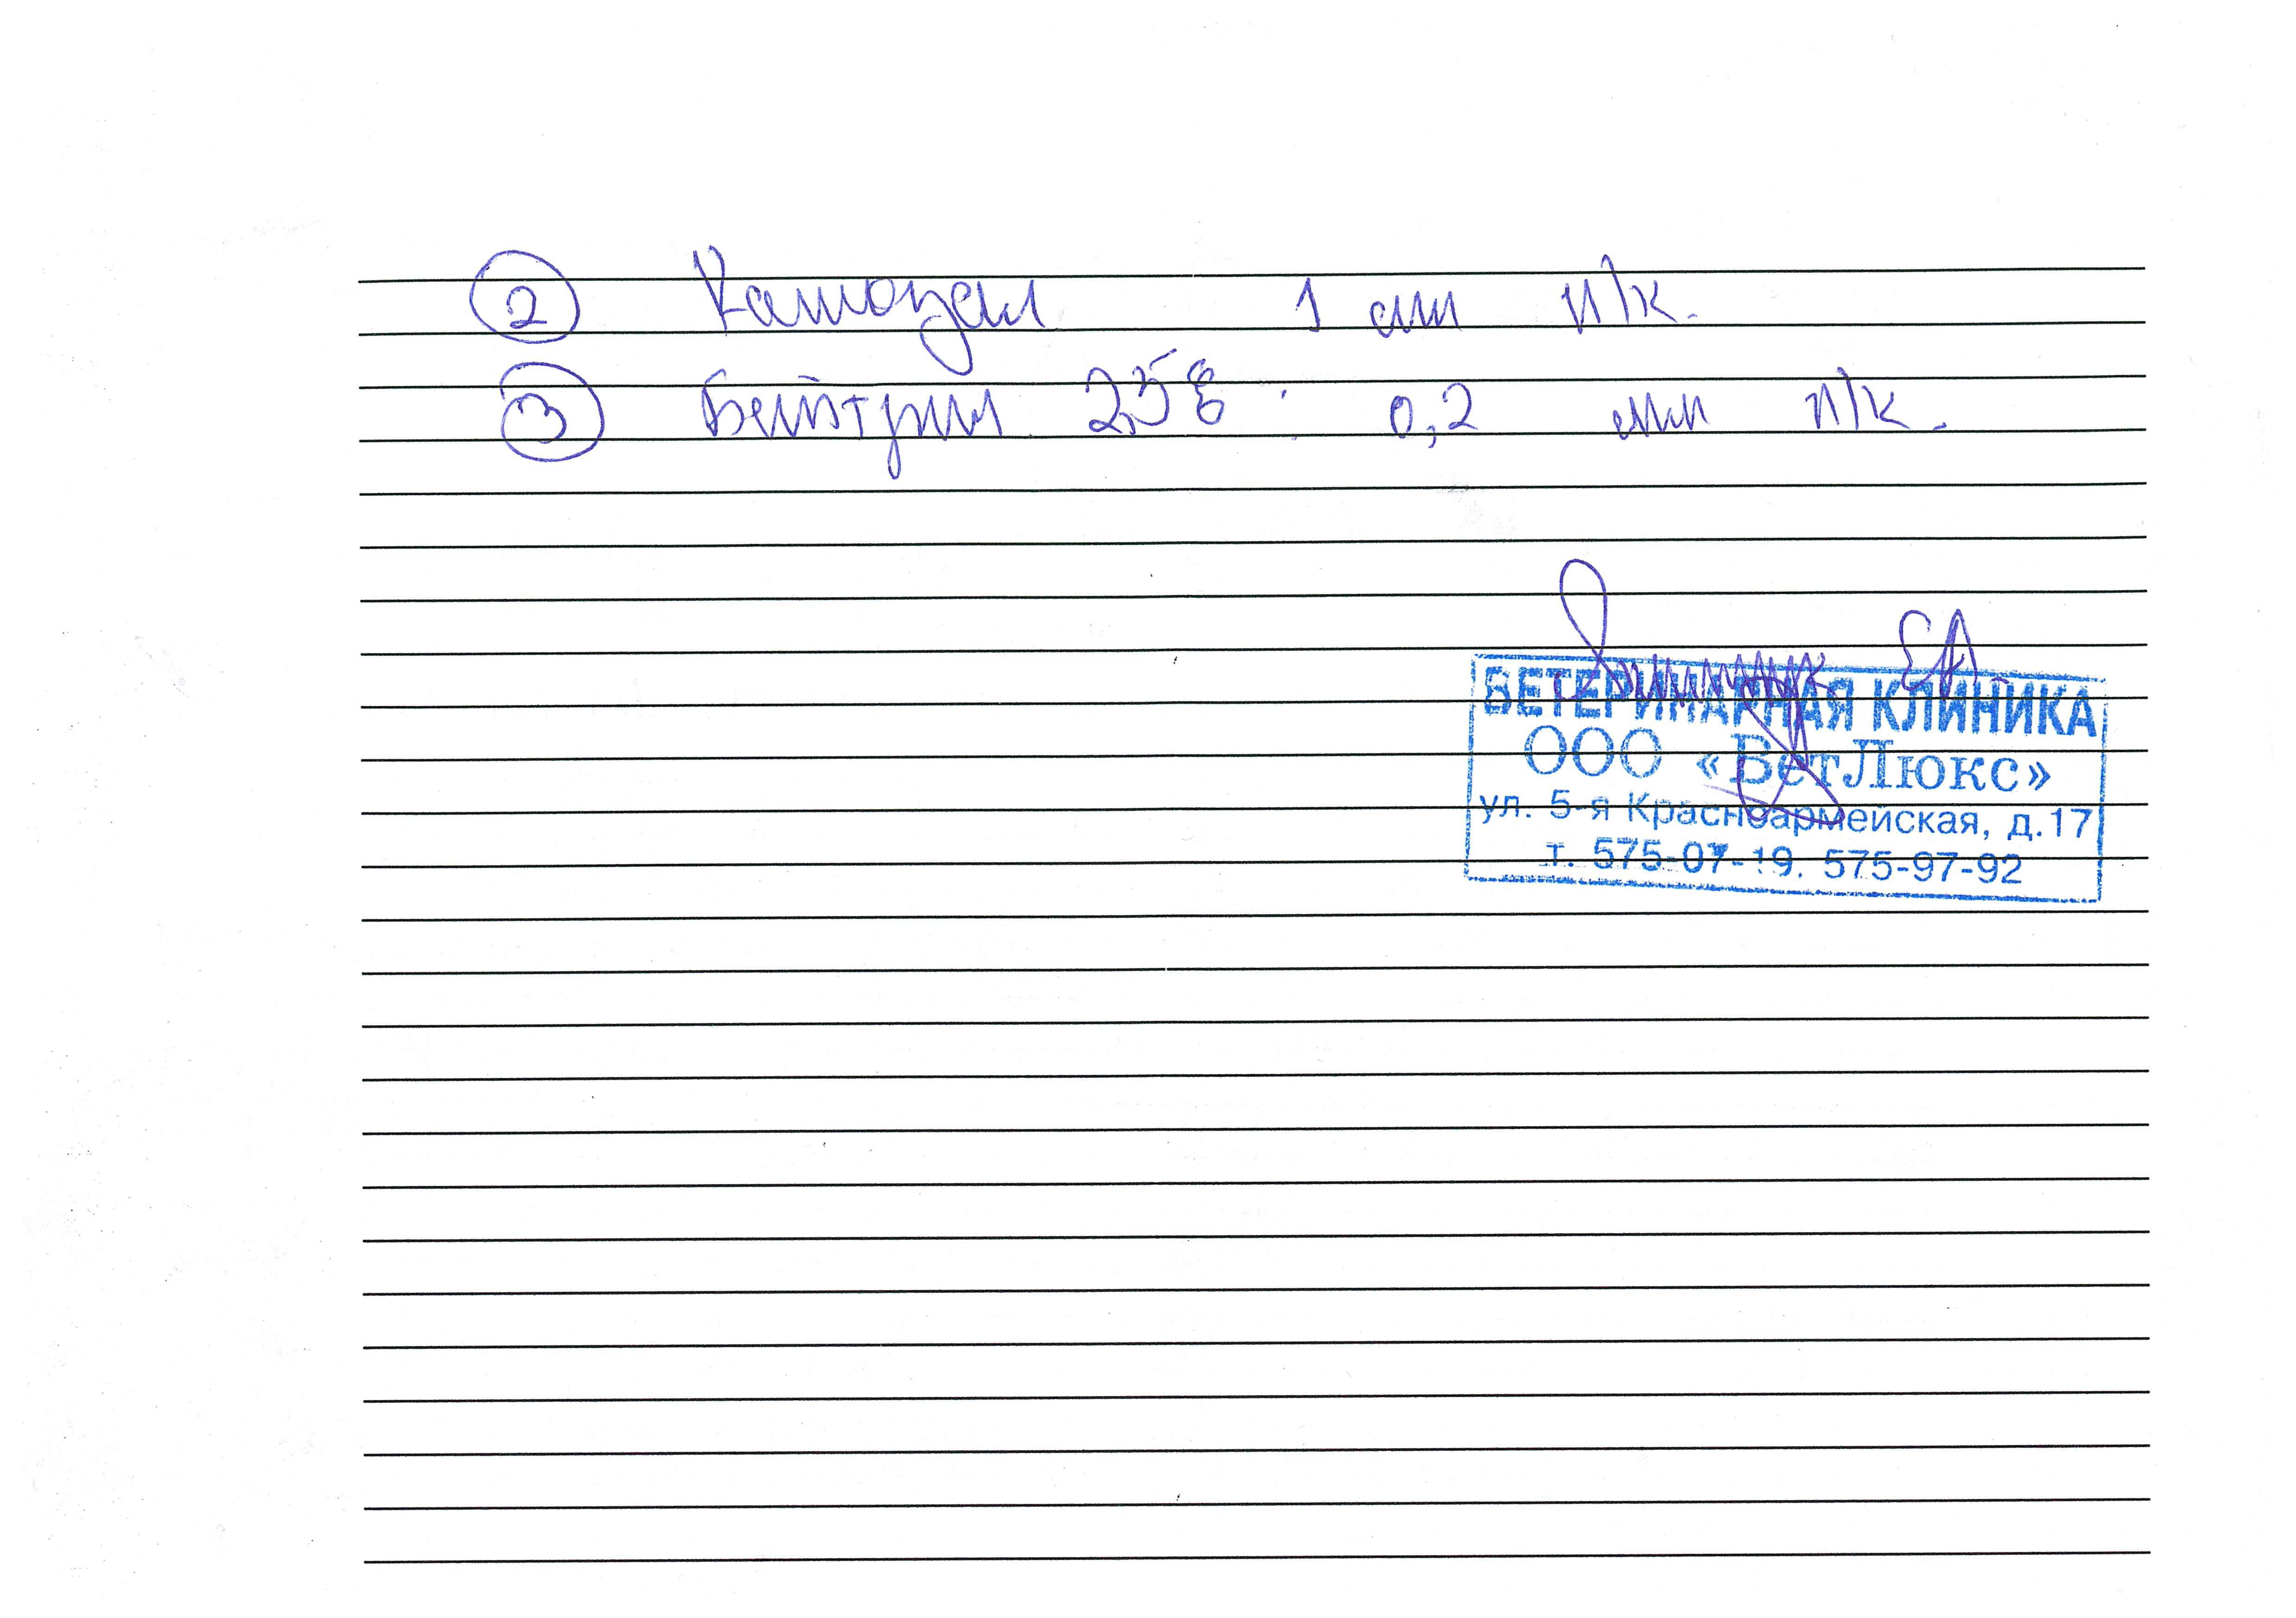 2 Катозал 1 мл п/к.
3 Байтрил 2,5% : 0,2 мл п/к.
ЕА
ВЕТЕРИНАРНАЯ КЛИНИКА
ООО «ВетЛюкс»
ул. 5-я Красноармейская, д.17
т. 575-07-19. 575-97-92